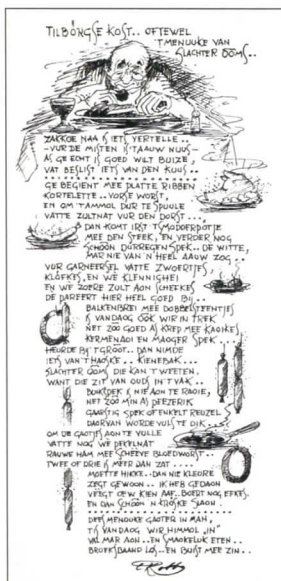 TILBÖRGSE KOST.. OFTEWEL
'T MENUUKE VAN
SLACHTER OOMS..
ZAKKOE NAA 'S IETS VERTELLE..
-VUR DE MISTEN IS 'T AAUW NUUS-
AS GE ECHT IS GOED WILT BUIZE,
VAT BESLIST IETS VAN DEN KUUS..
GE BEGIENT MEE PLATTE RIBBEN
KORTELETTE.. VORSE WORST,
EN OM T'AMMOL DUR TE SPUULE
VATTE ZULTNAT VUR DEN DORST...
DAN KOMT IRST 'T SMODDERDOTJE
MEE DEN STEEK, EN VERDER NOG
SCHÔON DURREGENSPEK.. DE WITTE,
MAR NIE VAN 'N HEEL AAUW ZOG..
VUR GARNEERSEL VATTE ZWOERTJES,
KLÖFKES, EN WE KLENNIGHEI
EN WE ZOERE ZULT AON SCHEEFKES
DE DARFERT HIER HEEL GOED BIJ..
BALKENBREI MEE DOBBELSTEENTJES
IS VANDAOG OOK WIR IN TREK
NET ZOO GOED AS KREP MEE KAOIKES
KERMENAOI EN MAOGER SPEK..
HEURDE BIJ 'T GROOT.. DAN NIMDE
IETS VAN 'T HAOSKE.. KIENEBAK...
SLACHTER OOMS DIE KAN 'T WEETEN,
WANT DIE ZIT VAN OUDS IN 'T VAK..
BUIKSPEK IS NIE AON TE RAOIE,
NET ZOO MIN AS PEEZERIK
GAARSTIG SPEK OF ENKELT REUZEL
DAOR VAN WORDE VULS TE DIK...
OM DE GAOTJES AON TE VULLE
VATTE NOG WE PEEKELNAT
RAUWE HAM MEE SCHEEVE BLOEDWORST..
TWEE OF DRIE IS MEER DAN ZAT....
MOETTE HIKKE.. DAN NIE KLEURE
ZEGT GEWOON.. IK HEB GEDAON
VEEGT OEW KIEN AAF.. BOERT NOG EFKES.
EN DAN SCHÔON 'N KRÖSKE SLAON.
DEES MENUUKE GAOTER IN MAN,
'T IS VANDAOG WIR HIMMOL „IN"
VAL MAR AON.. EN SMAOKELUK ETEN..
BROEKSBAAND LOS.. EN BUIST MEE ZIN..